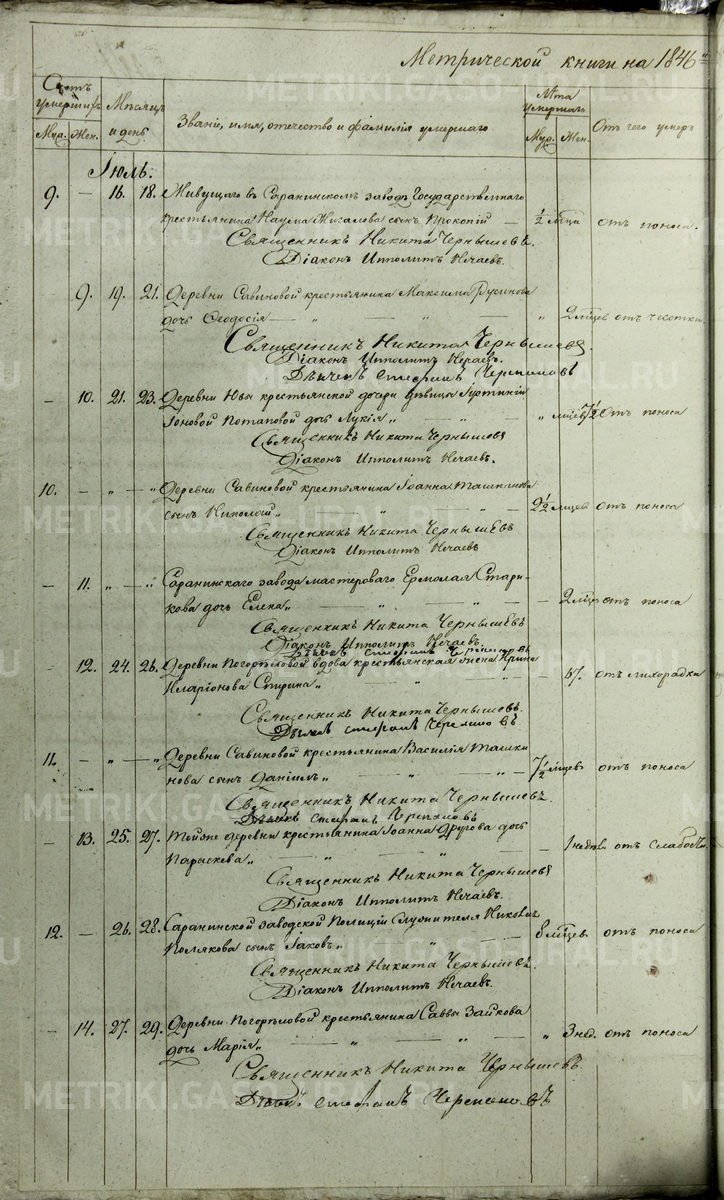 Метрической книги на 1846
Счетъ умершихъ
Мѣсяцъ и день
Званіе, имя, отчество и фамилія умершаго
Лѣта умершаго
Отъ чего умеръ
Муж. Жен.
Муж. Жен.
Іюль.
9. — 16. 18. Живущаго въ Саранинскомъ заводѣ Государственнаго
крестьянина Наума сынъ Прокопій — ½ мѣсца отъ поноса.
Священникъ Никита Чернышевъ.
Діаконъ Ипполитъ Нечаевъ.
9. 19. 21. Деревни Савиновой крестьянина Максима Русинова
дочь Ѳеодосія — „ — „ 2 мѣсцев отъ чесотки.
Священникъ Никита Чернышевъ.
Діаконъ Ипполитъ Нечаевъ.
Дьячекъ Стефанъ Черепановъ
— 10. 21. 23. Деревни Ювы крестьянской дочери дѣвицы Іустиніи
Іоновой Потаповой дочь Лукія „ „ „ мѣсцев 7½ Отъ поноса
Священникъ Никита Чернышевъ
Діаконъ Ипполитъ Нечаевъ.
10. — „ — „ Деревни Савиновой крестьянина Іоанна Ташкинова
сынъ Николай „ — „ — 2½ мѣсцев отъ поноса
Священникъ Никита Чернышевъ
Діаконъ Ипполитъ Нечаевъ
— 11. „ — „ Саранинскаго завода мастероваго Ермолая Стари-
кова дочь Елена „ — „ — 2 мѣсц отъ поноса
Священникъ Никита Чернышевъ
Діаконъ Ипполитъ Нечаевъ.
Дьячекъ Стефанъ Черепановъ
— 12. 24. 26. Деревни Погорѣловой вдова крестьянская жена Ирина
Иларіонова „ „ 67. отъ лихорадки
Священникъ Никита Чернышевъ.
Дьячекъ Стефанъ Черепановъ
11. — „ — „ Деревни Савиновой крестьянина Василія Ташки
нова сынъ Даніилъ „ — „ — 7½ мѣсцев отъ поноса
Священникъ Никита Чернышевъ.
Дьячекъ Стефанъ Черепановъ
— 13. 25. 27. Тойже деревни крестьянина Іоанна Другова дочь
Параскева „ — „ — 1 недѣл. отъ слабости
Священникъ Никита Чернышевъ
Діаконъ Ипполитъ Нечаевъ.
12. — 26. 28. Саранинской заводской Полиціи служителя
Полякова сынъ Іаковъ „ — „ — 8 мѣсцев. отъ поноса
Священникъ Никита Чернышевъ.
Діаконъ Ипполитъ Нечаевъ.
— 14. 27. 29. Деревни Погорѣловой крестьянина Саввы Зайкова
дочь Марія „ — „ — „ 3 нед. отъ поноса
Священникъ Никита Чернышевъ.
Дьячекъ Стефанъ Черепановъ
METRIKI.GASO-URAL.RU